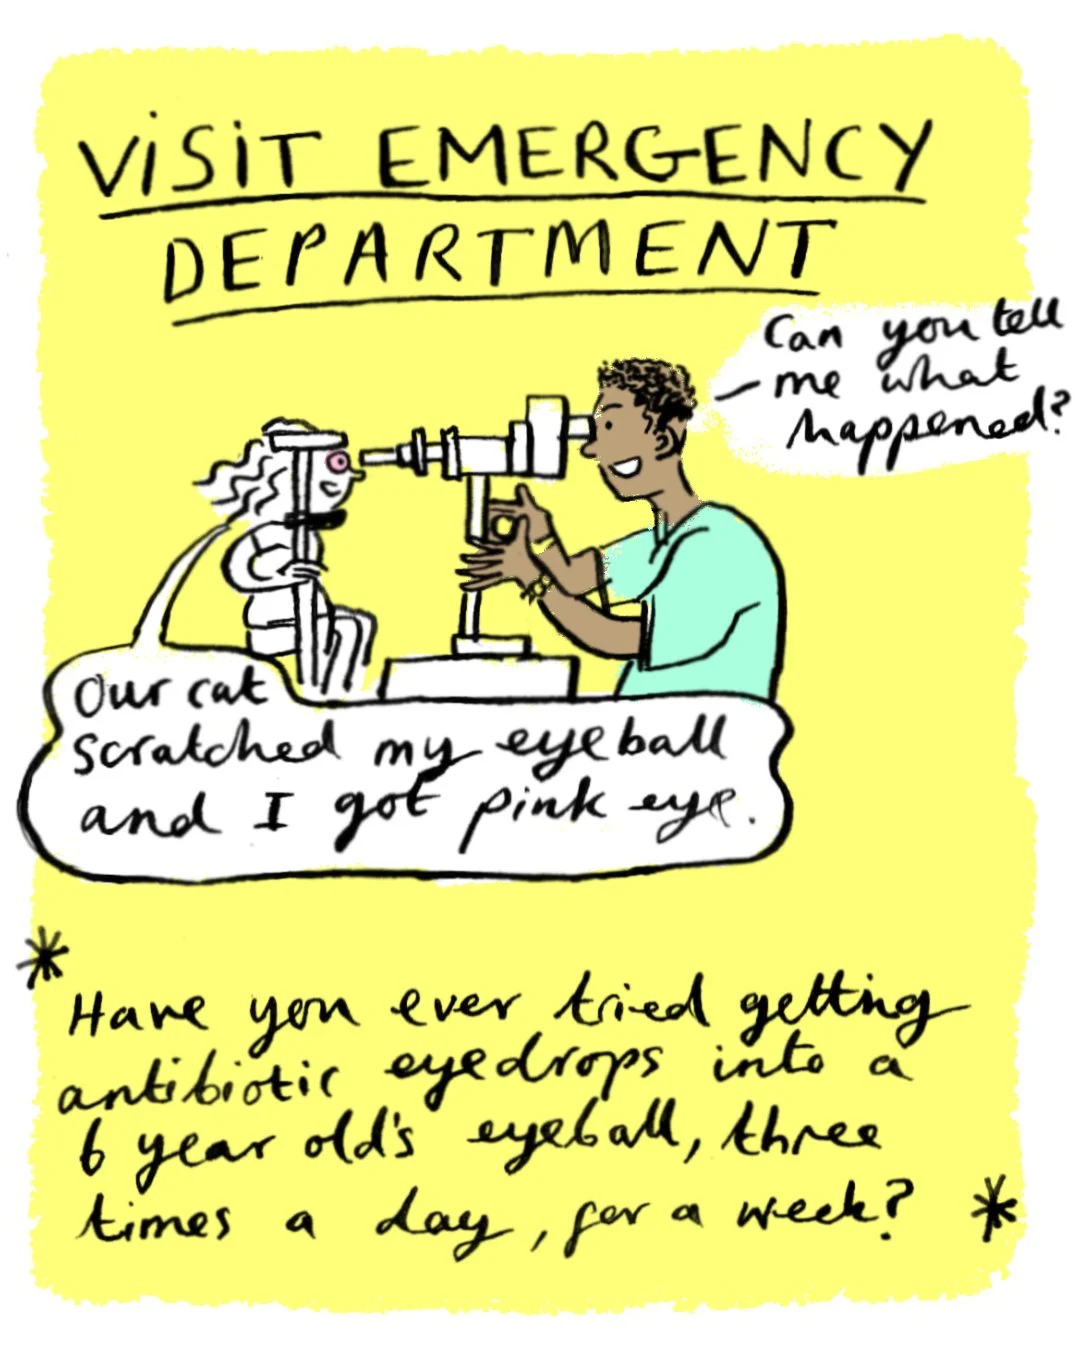 VISIT EMERGENCY
DEPARTMENT
Can you tell
me what
happened?
Our cat
scratched my eyeball
and I got pink eye.
*
Have you ever tried getting
antibiotic eyedrops into a
6 year old's eyeball, three
times a day, for a week? *